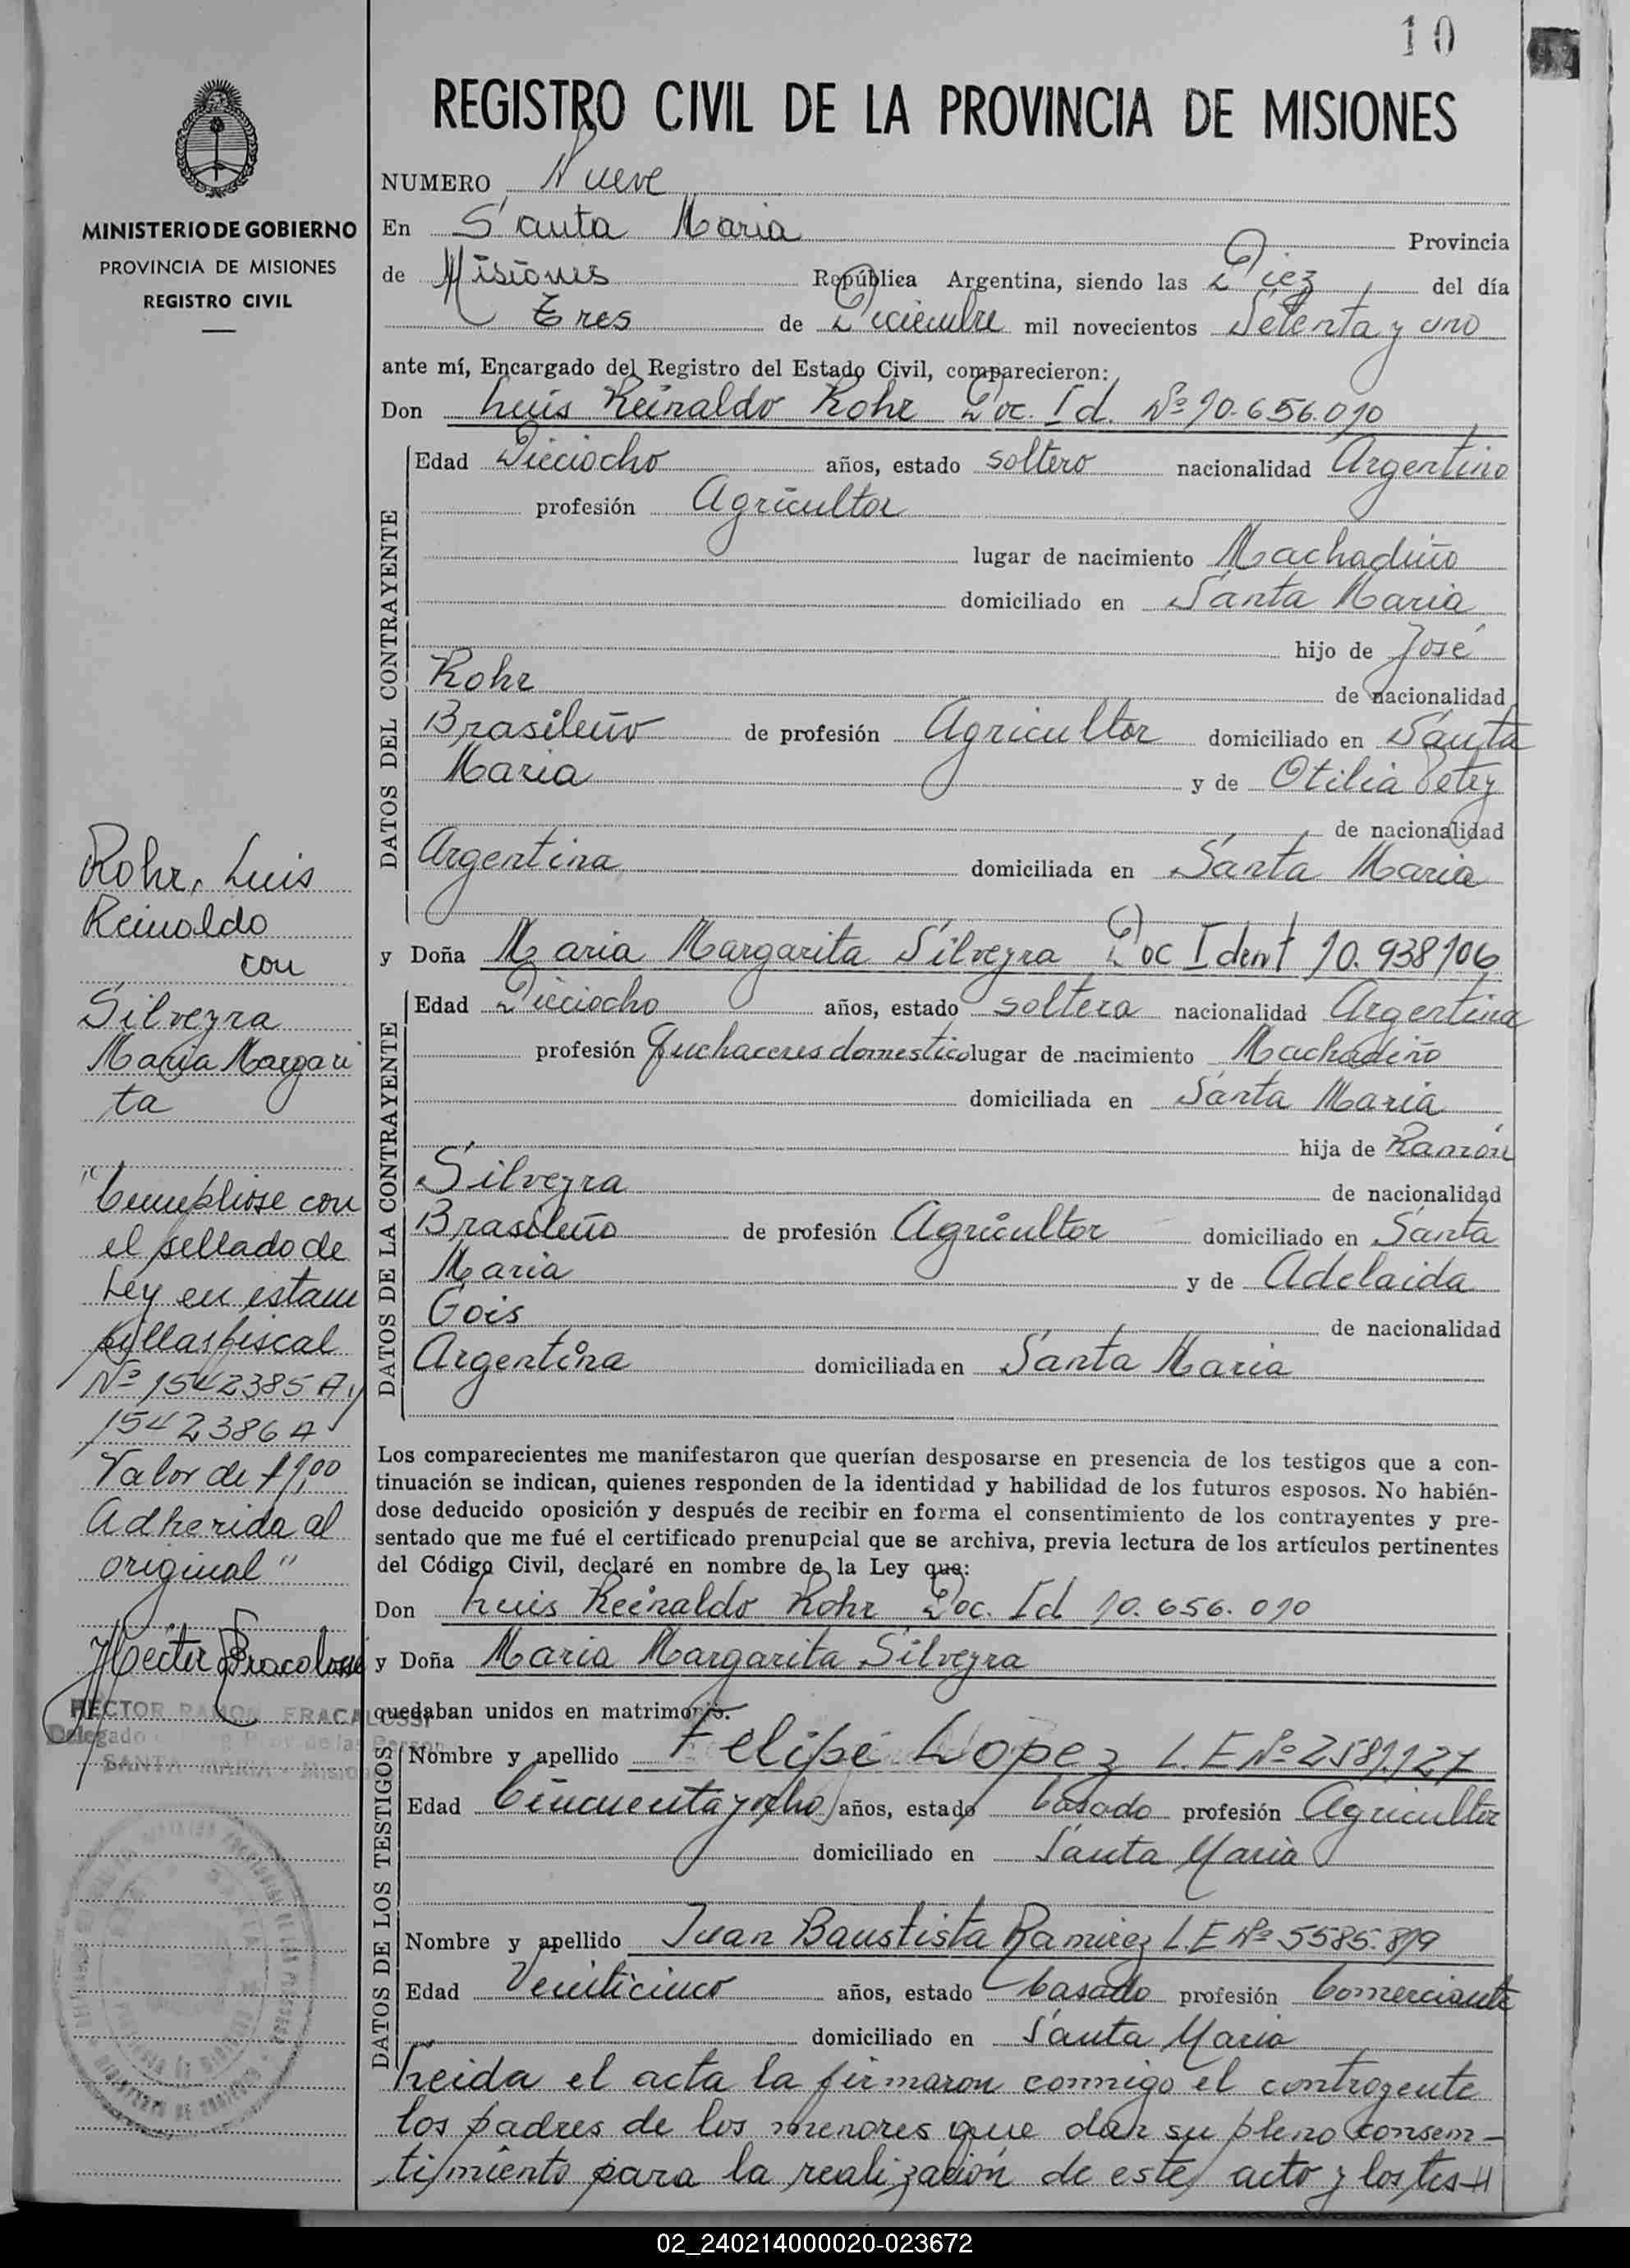 10
REGISTRO CIVIL DE LA PROVINCIA DE MISIONES
MINISTERIO DE GOBIERNO
PROVINCIA DE MISIONES
REGISTRO CIVIL
NUMERO Nueve
En Santa Maria Provincia
de Misiones República Argentina, siendo las Diez del día
Tres de Diciembre mil novecientos Setenta y uno
ante mí, Encargado del Registro del Estado Civil, comparecieron:
Don Luis Reinaldo Rohr Doc. Id. Nº 10.656.010
DATOS DEL CONTRAYENTE
Edad Dieciocho años, estado soltero nacionalidad Argentino
profesión Agricultor
lugar de nacimiento Machadiño
domiciliado en Santa Maria
hijo de José
Rohr de nacionalidad
Brasileño de profesión Agricultor domiciliado en Santa
Maria y de Otilia Petry
de nacionalidad
Argentina domiciliada en Santa Maria
y Doña Maria Margarita Silveyra Doc Ident 10.938106
DATOS DE LA CONTRAYENTE
Edad Dieciocho años, estado soltera nacionalidad Argentina
profesión Quehaceres domestico lugar de nacimiento Machadiño
domiciliada en Santa Maria
hija de Ramón
Silveyra de nacionalidad
Brasileño de profesión Agricultor domiciliado en Santa
Maria y de Adelaida
Gois de nacionalidad
Argentina domiciliada en Santa Maria
Los comparecientes me manifestaron que querían desposarse en presencia de los testigos que a con-
tinuación se indican, quienes responden de la identidad y habilidad de los futuros esposos. No habién-
dose deducido oposición y después de recibir en forma el consentimiento de los contrayentes y pre-
sentado que me fué el certificado prenupcial que se archiva, previa lectura de los artículos pertinentes
del Código Civil, declaré en nombre de la Ley que:
Don Luis Reinaldo Rohr Doc. Id 10.656.010
y Doña Maria Margarita Silveyra
quedaban unidos en matrimonio.
DATOS DE LOS TESTIGOS
Nombre y apellido Felipe Lopez L.E Nº 2581.127
Edad Cincuenta y ocho años, estado Casado profesión Agricultor
domiciliado en Santa Maria
Nombre y apellido Juan Baustista Ramirez L.E Nº 5585.819
Edad Veinticinco años, estado Casado profesión Comerciante
domiciliado en Santa Maria
Leida el acta la firmaron conmigo el controyente
los padres de los menores que dan su pleno consen-
timiento para la realización de este acto y los tes-
Rohr, Luis
Reinaldo
con
Silveyra
Maria Margari
ta
"Cumpliose con
el sellado de
Ley en estam
pillas fiscal
Nº 1542385 A y
1542386 A
Valor de $ 1,00
Adherida al
original"
Hector Fracalossi
HECTOR RAMON FRACALOSSI
Delegado
SANTA MARIA - Misiones
02_240214000020-023672